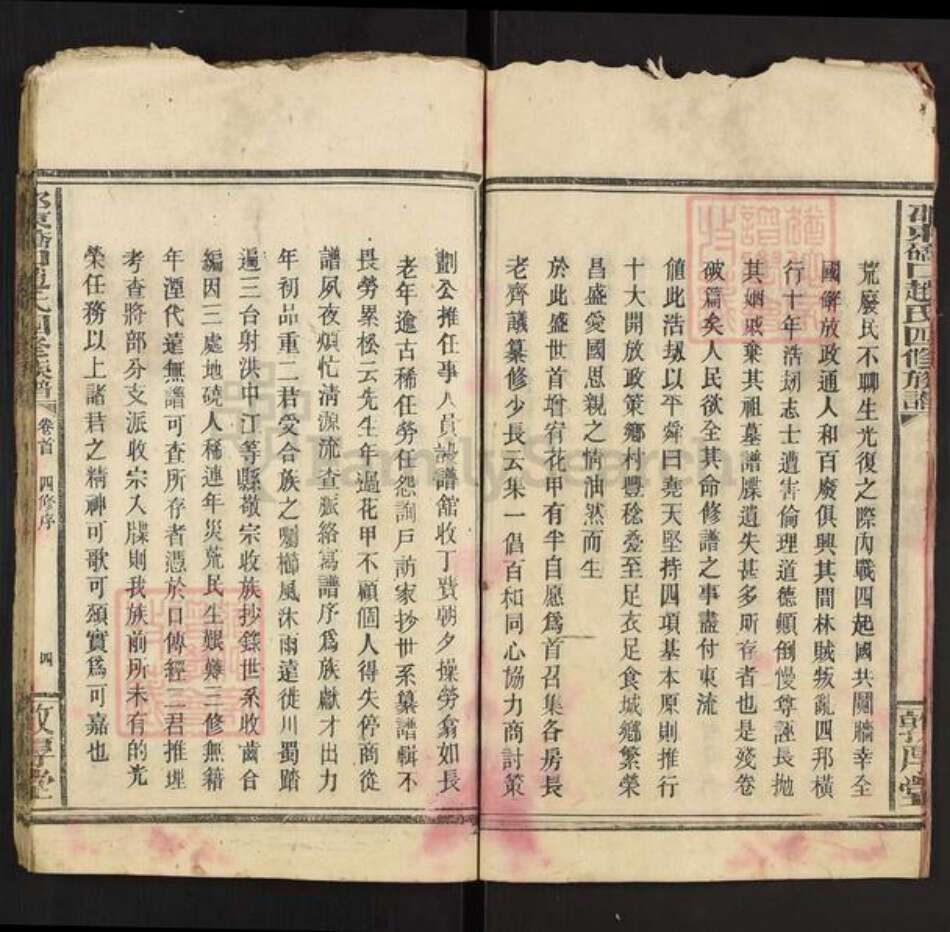 邵東𥕢口趙氏四修族譜
敦厚堂
荒廢民不聊生光復之際內戰四起國共鬩牆幸全
國解放政通人和百廢俱興其間林賊叛亂四邦橫
行十年浩劫志士遭害倫理道德顛倒慢尊誣長拋
其姻戚棄其祖墓譜牒遺失甚多所存者也是殘卷
破篇矣人民欲全其命修譜之事盡付東流
值此浩劫以平舜日堯天堅持四項基本原則推行
十大開放政策鄉村豐稔叠至足衣足食城鄉繁榮
昌盛愛國思親之情油然而生
於此盛世首增宥花甲有半自愿爲首召集各房長
老齊議纂修少長云集一倡百和同心協力商討策
劃公推任事人員設譜舘收丁費朝夕操勞翕如長
老年逾古稀任勞任怨詢戶訪家抄世系纂譜輯不
畏勞累松云先生年過花甲不顧個人得失停商從
譜夙夜煩忙淸源流查脈絡寫譜序爲族獻才出力
年初品重二君受合族之囑櫛風沐雨遠徙川蜀踏
遍三台射洪中江等縣敬宗收族抄錄世系收齒合
編因三處地磽人稀連年災荒民生艱難三修無籍
年湮代遠無譜可查所存者憑於口傳經二君推理
考查將部分支派收宗入牒則我族前所未有的光
榮任務以上諸君之精神可歌可頌實爲可嘉也
卷首 四修序
四
敦厚堂